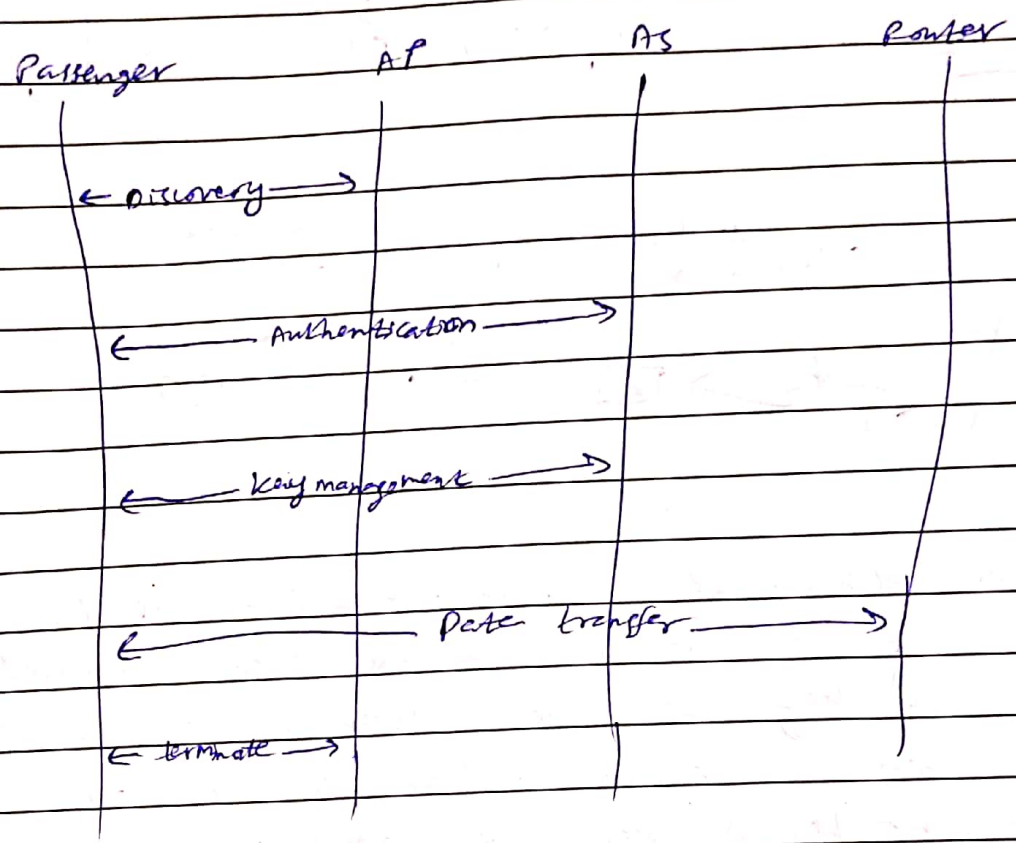 Passenger AP AS Router
Discovery
Authentication
Key managment
Data transfer
terminate